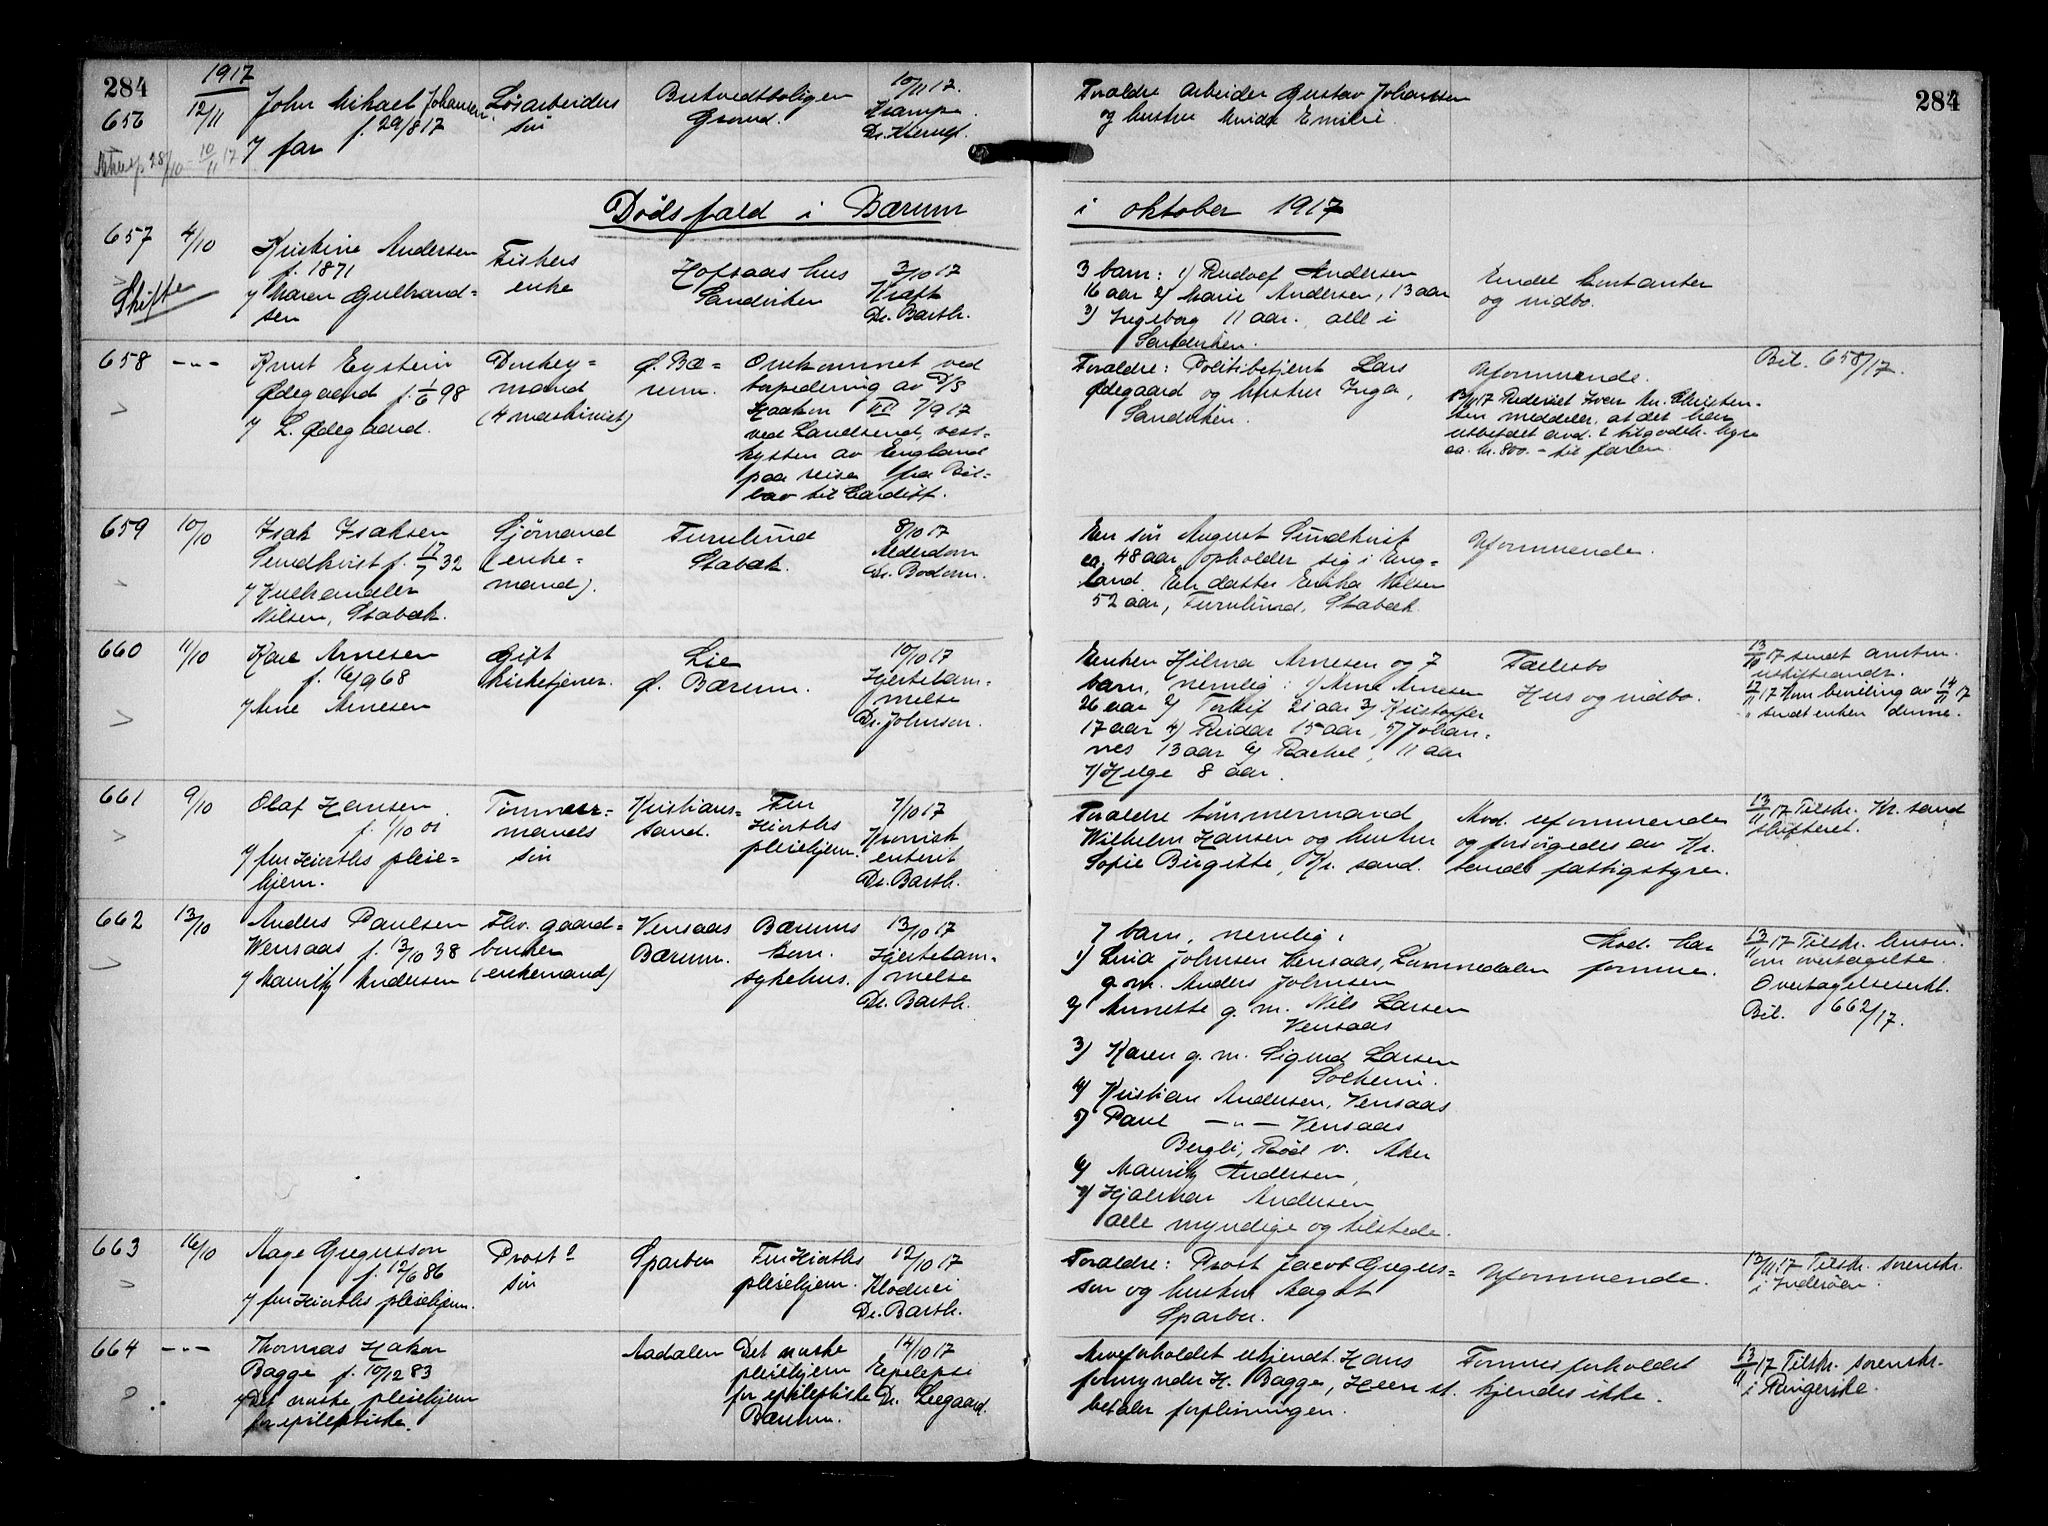 284
1917
656
12/11
John Mikael Johansen
f. 29/8 17
7 far
Løsarbeiders
søn
Bretvedtboligen
Grorud.
10/11 17.
Krampe
Forældre arbeider Gustav Johansen
og hustru Emilie
284
28/10 - 10/11 17
Dødsfald i Bærum
i oktober 1917
657
4/10
Skifte
Kristine Andersen
f. 1871
7 Maren Gulbrand=
sen
Fiskers
enke
Hofsaas hus
Sandviken
3/10 17
Kræft
Dr. Barth.
3 barn: 1) Rudolf Andersen
16 aar 2) Marie Andersen, 13 aar
3) Ingeborg 11 aar, alle i
Sandviken.
Endel kontanter
og indbo.
658
-"-
Knut Eystein
Ødegaard f. 1/6 98
7 L. Ødegaard.
Donkey=
mand
(4 maskinist)
Ø. Bæ=
rum.
Omkommet ved
torpedering av D/S
Haakon VII 7/9 17
ved Landsend, vest=
kysten av England
paa reise fra Bil=
bao til Cardiff.
Forældre: Politibetjent Lars
Ødegaard og hustru Inga,
Sandviken.
Uformuende.
13/11 17 Rederiet Iver An. Christen=
sen meddeler, at det har
utbetalt avd. s tilgodeh. hyre
ca. kr. 800.- til faren.
Bil. 658/17.
659
10/10
Isak Isaksen
Sundkvist f. 17/7 32
7 Kulhandler
Nilsen, Stabæk.
Sjømand
(enke=
mand).
Furulund
Stabæk.
8/10 17
Alderdom
Dr. Bodom.
En søn August Sundkvist
ca. 48 aar, opholder sig i Eng=
land. En datter Erika Nilsen
52 aar, Furulund, Stabæk.
Uformuende.
660
11/10
Karl Arnesen
f. 16/9 68
7 Arne Arnesen
Gift
kirketjener.
Lie
Ø. Bærum.
10/10 17
Hjertelam=
melse
Dr. Johnson.
Enken Hilma Arnesen og 7
barn, nemlig: 1) Arne Arnesen
26 aar 2) Torleif 21 aar 3) Kristoffer
17 aar 4) Reidar 15 aar, 5) Johan=
nes 13 aar 6) Rachel, 11 aar
7) Helge 8 aar.
Fællesbo
Hus og indbo.
13/10 17 sendt anm.
uskifteandr.
17/11 17 Kom bevilling av 14/11 17
sendt enken denne.
661
9/10
Olaf Hansen
f. 1/10 01
7 fru Hjorths pleie=
hjem.
Tømmer=
mands
søn
Kristians=
sand.
Fru
Hjorths
pleiehjem.
7/10 17
Kronisk
enterit
Dr. Barth.
Forældre tømmermand
Wilhelm Hansen og hustru
Sofie Birgitte, Kr. sand.
Avd. uformuende
og forsørgedes av Kr.
sands fattigstyre.
13/11 17 Tilskr. Kr. sand
skifteret.
662
13/10
Anders Paulsen
Wensaas f. 13/10 38
7 Mauritz Andersen
Fhv. gaard=
bruker
(enkemand)
Vensaas
Bærum.
Bærums
kom.
sykehus.
13/10 17
Hjertelam=
melse
Dr. Barth.
7 barn, nemlig:
1) Lina Johnsen Vensaas, Lommedalen
g. m. Anders Johnsen
2) Annette g. m. Nils Larsen
Vensaas
3) Karen g. m. Sigurd Larsen
Solheim.
4) Kristian Andersen, Vensaas
5) Paul -"- Vensaas
Bergli, Røa v. Aker
6) Mauritz Andersen,
7) Hjalmar Andersen
alle myndige og tilstede.
Avd. ha=
formue.
13/11 17 Tilskr.
om overtagelse.
Overtagelseserkl.
Bil. 662/17.
663
16/10
Aage Gregusson
f. 12/6 86
7 fru Hjorths pleiehjem.
Prost s
søn
Sparbu
Fru Hjorths
pleiehjem.
12/10 17
Dr. Barth.
Forældre: Prost Jacob Gregus=
son og hustru Aagot
Sparbu.
Uformuende.
13/11 17 Tilskr. sorenskr.
i Inderøen.
664
-"-
Thomas Hakon
Bagge f. 10/12 83
7 Det norske pleiehjem
for epileptiske.
Aadalen
Det norske
pleiehjem
for epileptiske
Bærum.
14/10 17
Epilepsi
Dr. Leegaard.
Arveforholdet ukjendt. Hans
formynder H. Bagge, Heen st.
betaler forpleiningen.
Formuesforholdet
kjendes ikke.
13/11 17 Tilskr. sorenskr.
i Ringerike.